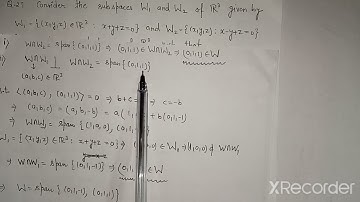 Q.25 Consider the subspaces W₁ and W₂ of ℝ³ given by
W₁ = {(x,y,z) ∈ ℝ³ : x+y+z=0} and W₂ = {(x,y,z) : x-y+z=0}
W∩W₂ = span{(0,1,1)} ⇒ (0,1,1) ∈ W∩W₂ ⇒ (0,1,1) ∈ W
W∩W₁ ⊥ W∩W₂ = span{(0,1,1)}
(a,b,c) ∈ ℝ³
⟨(a,b,c), (0,1,1)⟩ = 0 ⇒ b+c=0 ⇒ c=-b
⇒ (a,b,c) = (a,b,-b) = a(1,0,0)+b(0,1,-1)
⇒ W∩W₁ = span
W₁ = {(x,y,z) ∈ ℝ³ : x+y+z=0} ⇒ (1,0,0) ∉ W₁ ⇒ (1,0,0) ∉ W∩W₁
⇒ W∩W₁ = span{(0,1,-1)} ⇒ (0,1,-1) ∈ W
⇒ W = span{(0,1,-1), (0,1,1)}
XRecorder